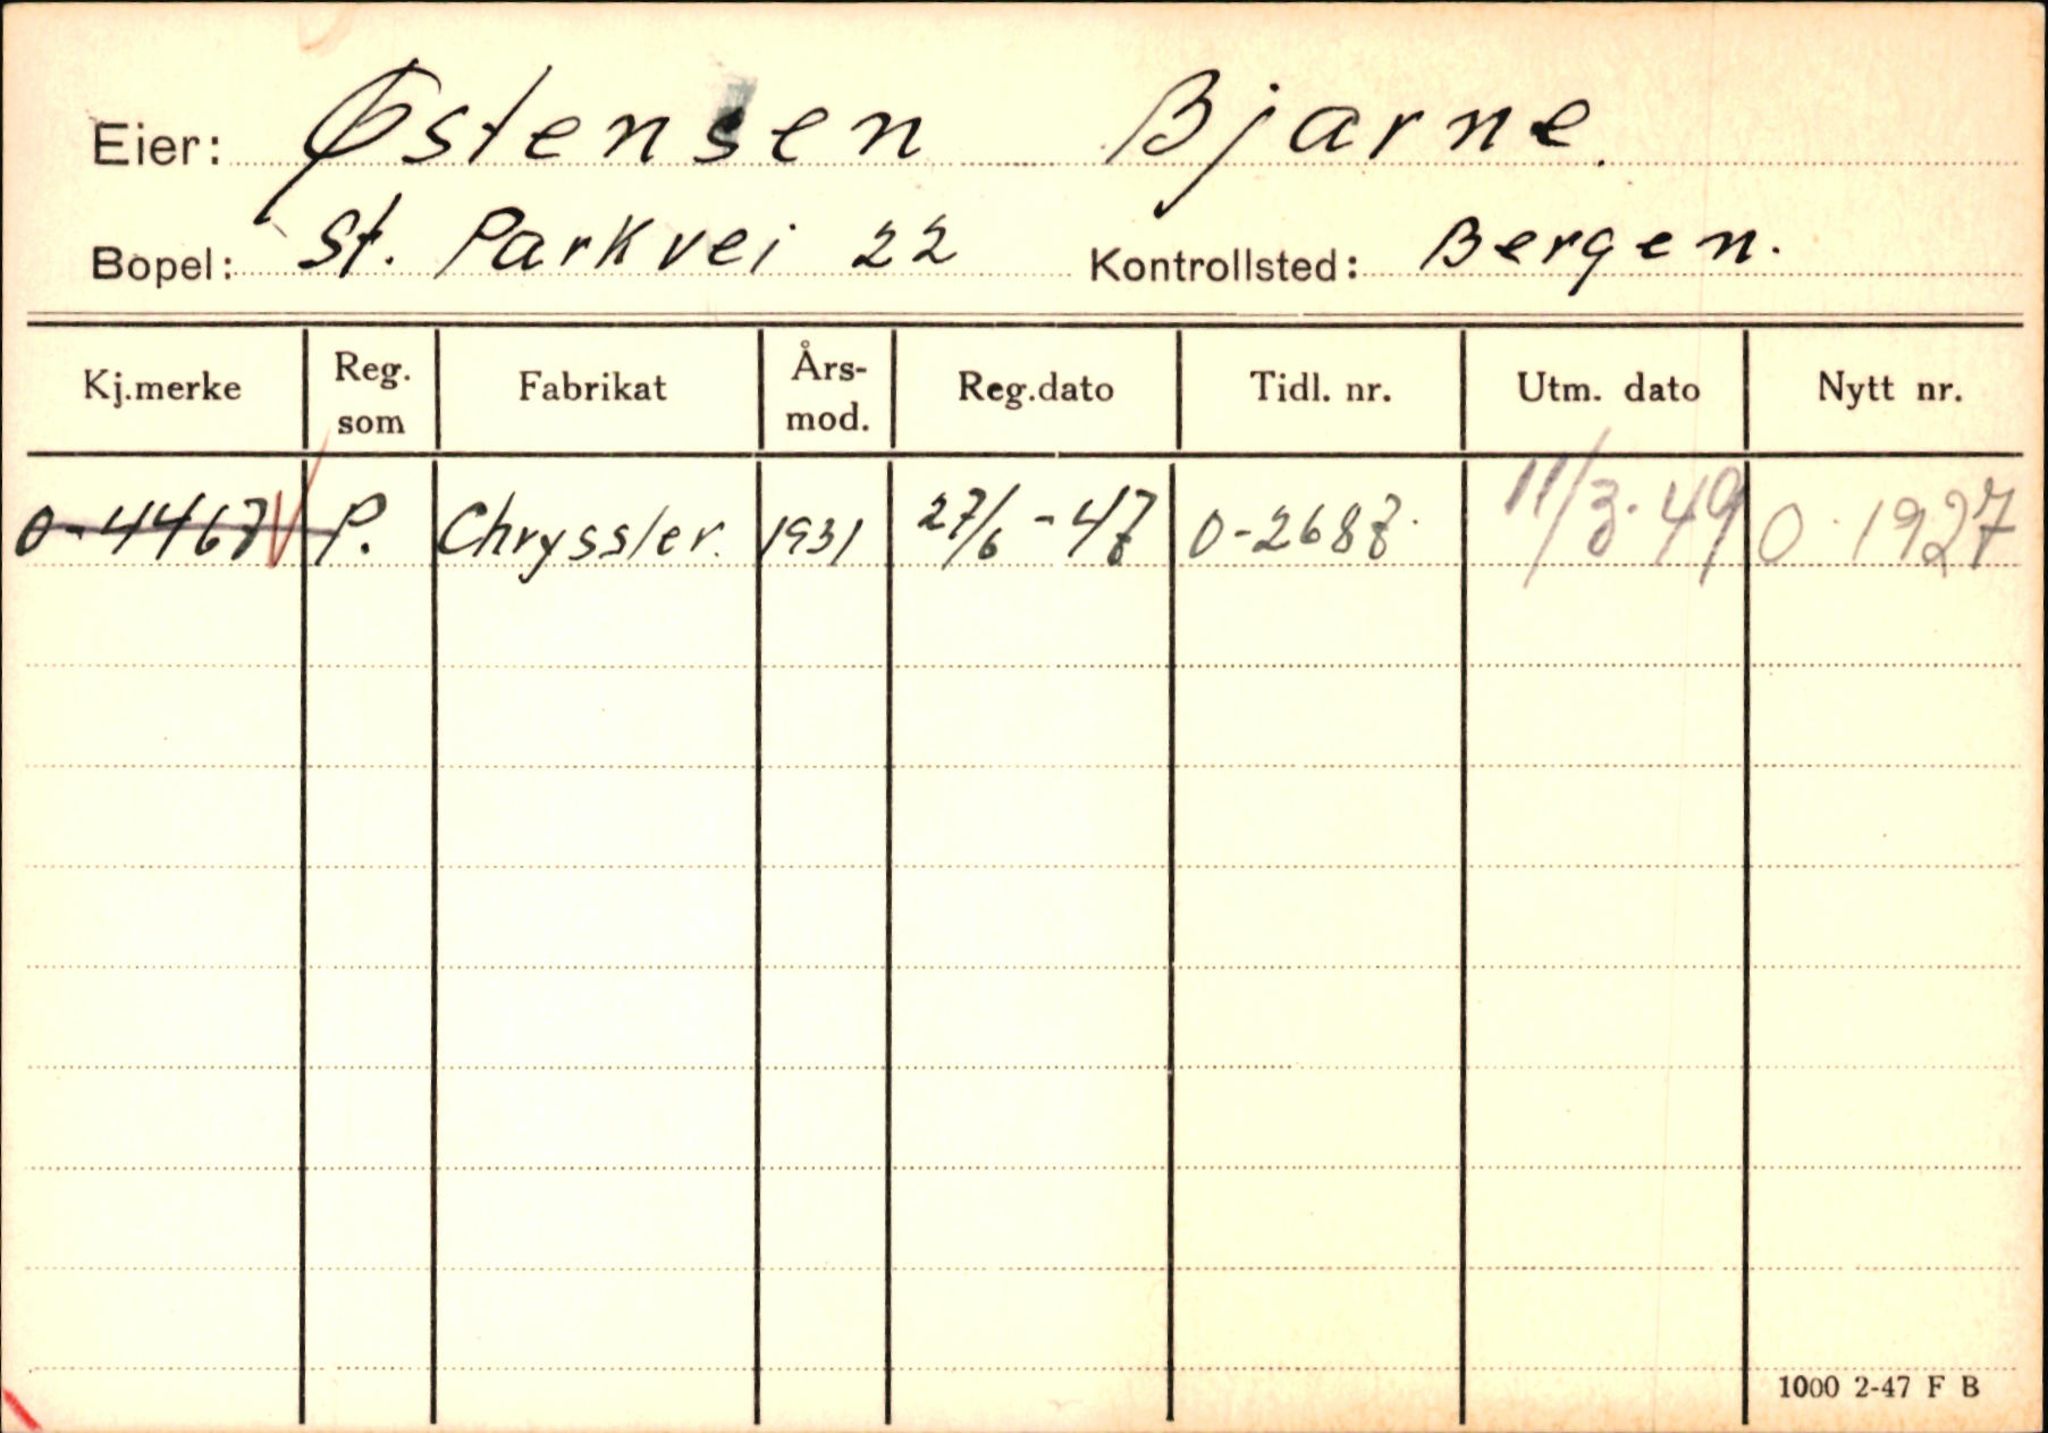 Eier: Østensen Bjarne.
Bopel: St. Parkvei 22 Kontrollsted: Bergen.
Kj.merke Reg. som Fabrikat Års-mod. Reg.dato Tidl. nr. Utm. dato Nytt nr.
O-4467 P. Chryssler. 1931 27/6-47 O-2687. 11/3.49 O.1927
1000 2-47 F B